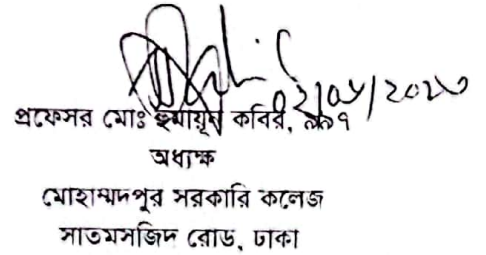 প্রফেসর মোঃ হুমায়ূন কবির,
অধ্যক্ষ
মোহাম্মদপুর সরকারি কলেজ
সাতমসজিদ রোড, ঢাকা